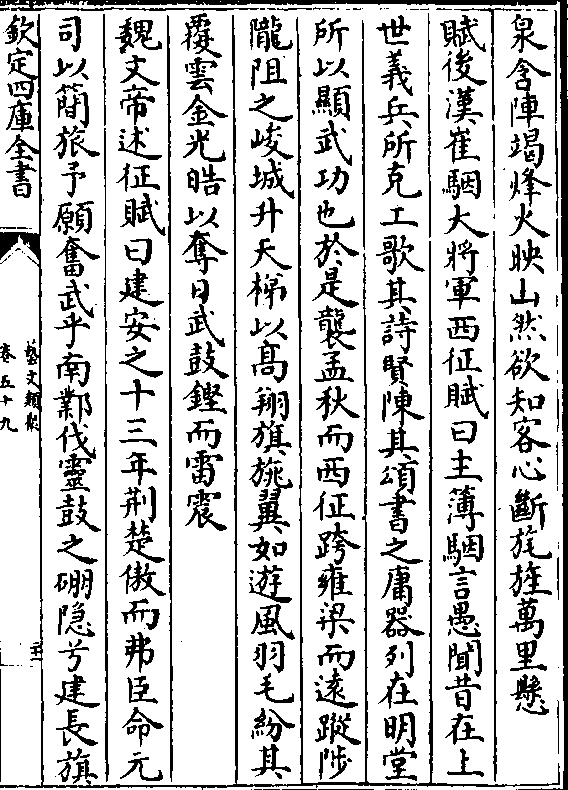 泉含陣竭烽火映山然欲知客心斷旄旌萬里懸
賦後漢崔駰大將軍西征賦曰主簿駰言愚聞昔在上
世義兵所克工歌其詩賢陳其頌書之庸器列在明堂
所以顯武功也於是襲孟秋而西征跨雍梁而遠蹤陟
隴阻之峻城升天梯以髙翔旗旐翼如遊風羽毛紛其
覆雲金光皓以奪日武鼓鏗而雷震
魏文帝述征賦曰建安之十三年荆楚傲而弗臣命元
司以簡旅予願奮武乎南鄴伐靈鼓之硼隐兮建長旗
欽定四庫全書
藝文類聚
卷五十九